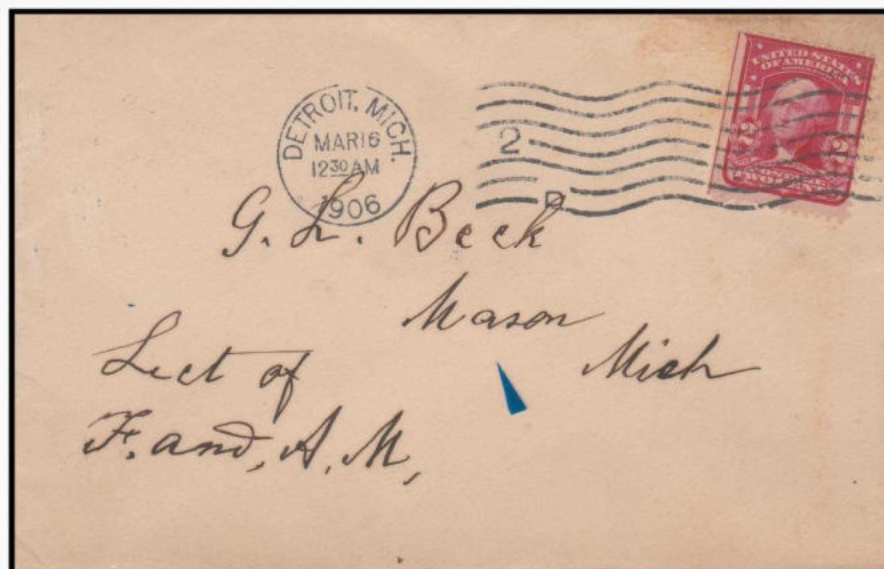 DETROIT, MICH.
MAR 16
12 30 AM
1906
2
D
UNITED STATES
OF AMERICA
2 2
TWO CENTS
G. L. Beck
Mason
Mich
Sect of
F. and, A. M,